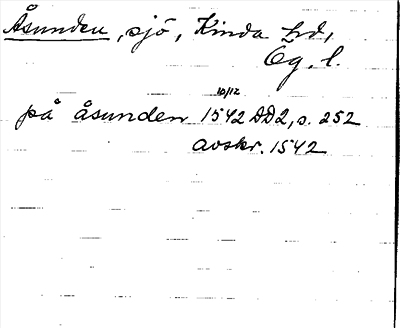 Åsunden, sjö, Kinda hd,
Ög. l.
10/12
på åsunden 1542 DD2, s. 252
avskr. 1542